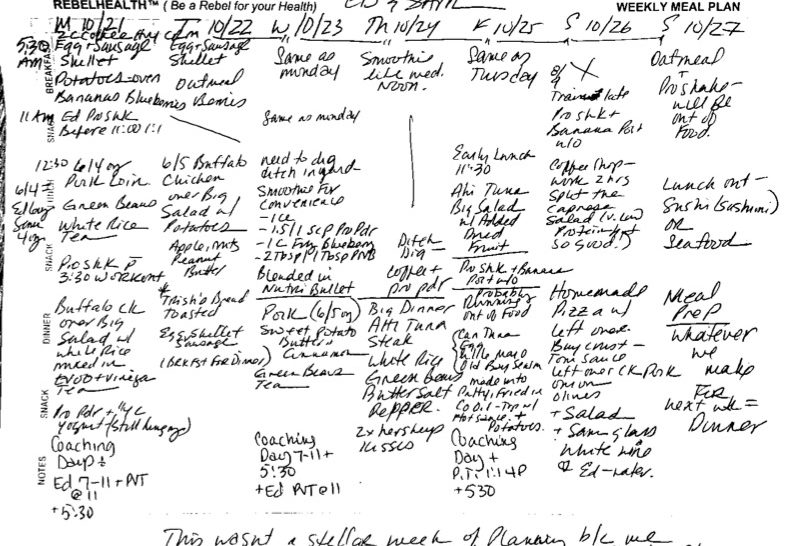 REBELHEALTH™ ( Be a Rebel for your Health)
WEEKLY MEAL PLAN
M 10/21
T 10/22
W 10/23
Th 10/24
F 10/25
S 10/26
S 10/27
BREAKFAST
5:30 AM
Egg + Sausage
Skillet
Potatoes-oven
Bananas Blueberries
Egg + Sausage
Skillet
Oatmeal
Berries
Same as
Monday
Smoothie
like wed.
Noon.
Same as
Tuesday
X
Train late
Pro shk +
Banana Post
w/o
Oatmeal
+
Pro shake -
will be
out of
Food.
SNACK
11 AM Ed Pro shk
Before 11:00 1:1
Same as monday
LUNCH
12:30 6/4 oz
Pork Loin
Green Beans
White Rice
Tea
6/5 Buffalo
Chicken
over Big
Salad w/
Potatoes
need to dig
ditch in yard
Smoothie For
convenience
- 1.5/1 scp Pro Pdr
- 1 C Frzn Blueberry
- 2 Tbsp / 1 Tbsp PNB
Blended in
Nutri Bullet
Early Lunch
11:30
Ahi Tuna
Big Salad
w/ Added
Dried
Fruit
Coffee Shop -
work 2 hrs
Split the
caprese
Salad
so Good!)
Lunch out -
Sushi (Sashimi)
OR
Seafood
SNACK
Pro Shk P
3:30 workout
Apple, nuts
Peanut
Butter
Ditch
Dig -
coffee +
pro pdr
Pro shk + Banana
Post w/o
DINNER
Buffalo ck
over Big
Salad w/
white Rice
mixed in
EVOO + Vinegar
Tea
* Trish's Bread
toasted
Egg Skillet
Sausage
(Brkfst For Dinner)
Pork (6/5 oz)
Sweet Potato
Butter +
Cinnamon
Green Beans
Tea
Big Dinner
Ahi Tuna
Steak
White Rice
Green Beans
Butter Salt
Pepper.
Probably
Running
out of Food
Can Tuna
Egg
Old Bay Seasn
made into
Patty, Fried in
Potatoes.
Homemade
Pizza w/
left over.
Buy crust -
Tom Sauce
left over ck Pork
onion
olives
+ Salad
+ Sam glass
white wine
& Ed - water.
Meal
Prep
whatever
we
make
For
next wk =
Dinner
SNACK
Pro Pdr + 1/4 C
yogurt (still hungry)
2x hersheys
kisses
NOTES
Coaching
Day +
Ed 7-11 + PVT
@ 11
+ 5:30
Coaching
Day 7-11 +
5:30
+ Ed PVT @ 11
Coaching
Day +
P.T. 1:1 4P
+ 530
This wasn't a stellar week of Planning b/c we